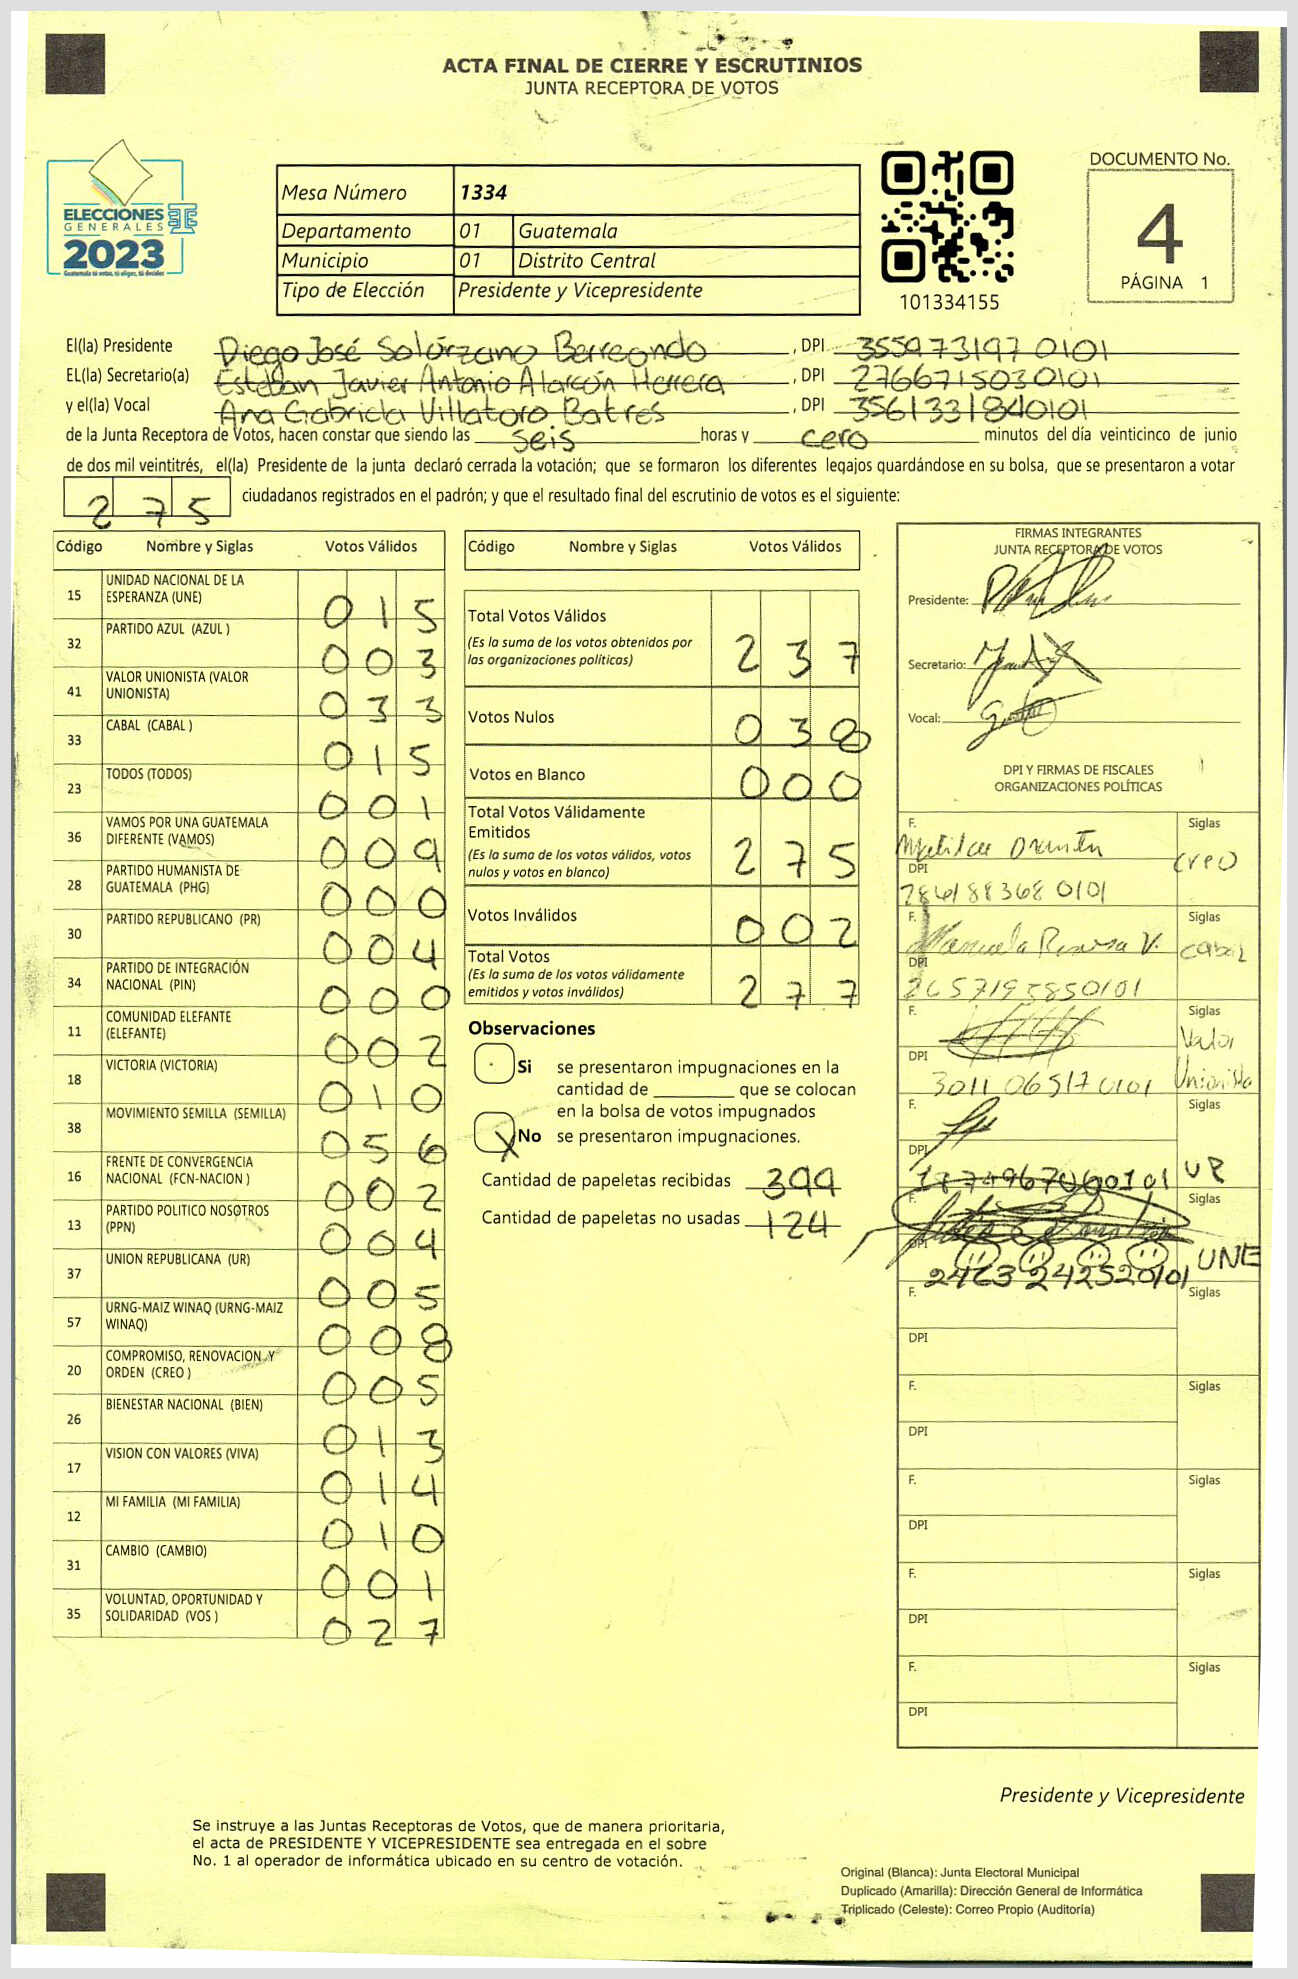 ACTA FINAL DE CIERRE Y ESCRUTINIOS
JUNTA RECEPTORA DE VOTOS
ELECCIONES
GENERALES
2023
Guatemala tú votas, tú eliges, tú decides
Mesa Número 1334
Departamento 01 Guatemala
Municipio 01 Distrito Central
Tipo de Elección Presidente y Vicepresidente
101334155
DOCUMENTO No.
4
PÁGINA 1
El(la) Presidente Diego José Solórzano Berreondo , DPI 355973197 0101
EL(la) Secretario(a) Esteban Javier Antonio Alarcón Herrera , DPI 2766715030101
y el(la) Vocal Ana Gabriela Villatoro Batres , DPI 3561331840101
de la Junta Receptora de Votos, hacen constar que siendo las seis horas y cero minutos del día veinticinco de junio
de dos mil veintitrés, el(la) Presidente de la junta declaró cerrada la votación; que se formaron los diferentes legajos guardándose en su bolsa, que se presentaron a votar
275 ciudadanos registrados en el padrón; y que el resultado final del escrutinio de votos es el siguiente:
Código Nombre y Siglas Votos Válidos
15 UNIDAD NACIONAL DE LA
ESPERANZA (UNE) 015
32 PARTIDO AZUL (AZUL ) 003
41 VALOR UNIONISTA (VALOR
UNIONISTA) 033
33 CABAL (CABAL ) 015
23 TODOS (TODOS) 001
36 VAMOS POR UNA GUATEMALA
DIFERENTE (VAMOS) 009
28 PARTIDO HUMANISTA DE
GUATEMALA (PHG) 000
30 PARTIDO REPUBLICANO (PR) 004
34 PARTIDO DE INTEGRACIÓN
NACIONAL (PIN) 000
11 COMUNIDAD ELEFANTE
(ELEFANTE) 002
18 VICTORIA (VICTORIA) 010
38 MOVIMIENTO SEMILLA (SEMILLA) 056
16 FRENTE DE CONVERGENCIA
NACIONAL (FCN-NACION ) 002
13 PARTIDO POLITICO NOSOTROS
(PPN) 004
37 UNION REPUBLICANA (UR) 005
57 URNG-MAIZ WINAQ (URNG-MAIZ
WINAQ) 008
20 COMPROMISO, RENOVACION Y
ORDEN (CREO ) 005
26 BIENESTAR NACIONAL (BIEN) 013
17 VISION CON VALORES (VIVA) 014
12 MI FAMILIA (MI FAMILIA) 010
31 CAMBIO (CAMBIO) 001
35 VOLUNTAD, OPORTUNIDAD Y
SOLIDARIDAD (VOS ) 027
Código Nombre y Siglas Votos Válidos
Total Votos Válidos
(Es la suma de los votos obtenidos por
las organizaciones políticas) 237
Votos Nulos 038
Votos en Blanco 000
Total Votos Válidamente
Emitidos
(Es la suma de los votos válidos, votos
nulos y votos en blanco) 275
Votos Inválidos 002
Total Votos
(Es la suma de los votos válidamente
emitidos y votos inválidos) 277
Observaciones
Si se presentaron impugnaciones en la
cantidad de ________ que se colocan
en la bolsa de votos impugnados
X No se presentaron impugnaciones.
Cantidad de papeletas recibidas 399
Cantidad de papeletas no usadas 124
FIRMAS INTEGRANTES
JUNTA RECEPTORA DE VOTOS
Presidente:
Secretario:
Vocal:
DPI Y FIRMAS DE FISCALES
ORGANIZACIONES POLÍTICAS
F. Siglas
creo
DPI
F. Manuela V. Siglas
cabal
DPI
F. Siglas
Valor
Unionista
DPI 3011 06517 0101
F. Siglas
DPI
UR
F. Siglas
DPI
UNE
F. Siglas
DPI
F. Siglas
DPI
F. Siglas
DPI
F. Siglas
DPI
F. Siglas
DPI
Presidente y Vicepresidente
Se instruye a las Juntas Receptoras de Votos, que de manera prioritaria,
el acta de PRESIDENTE Y VICEPRESIDENTE sea entregada en el sobre
No. 1 al operador de informática ubicado en su centro de votación.
Original (Blanca): Junta Electoral Municipal
Duplicado (Amarilla): Dirección General de Informática
Triplicado (Celeste): Correo Propio (Auditoría)